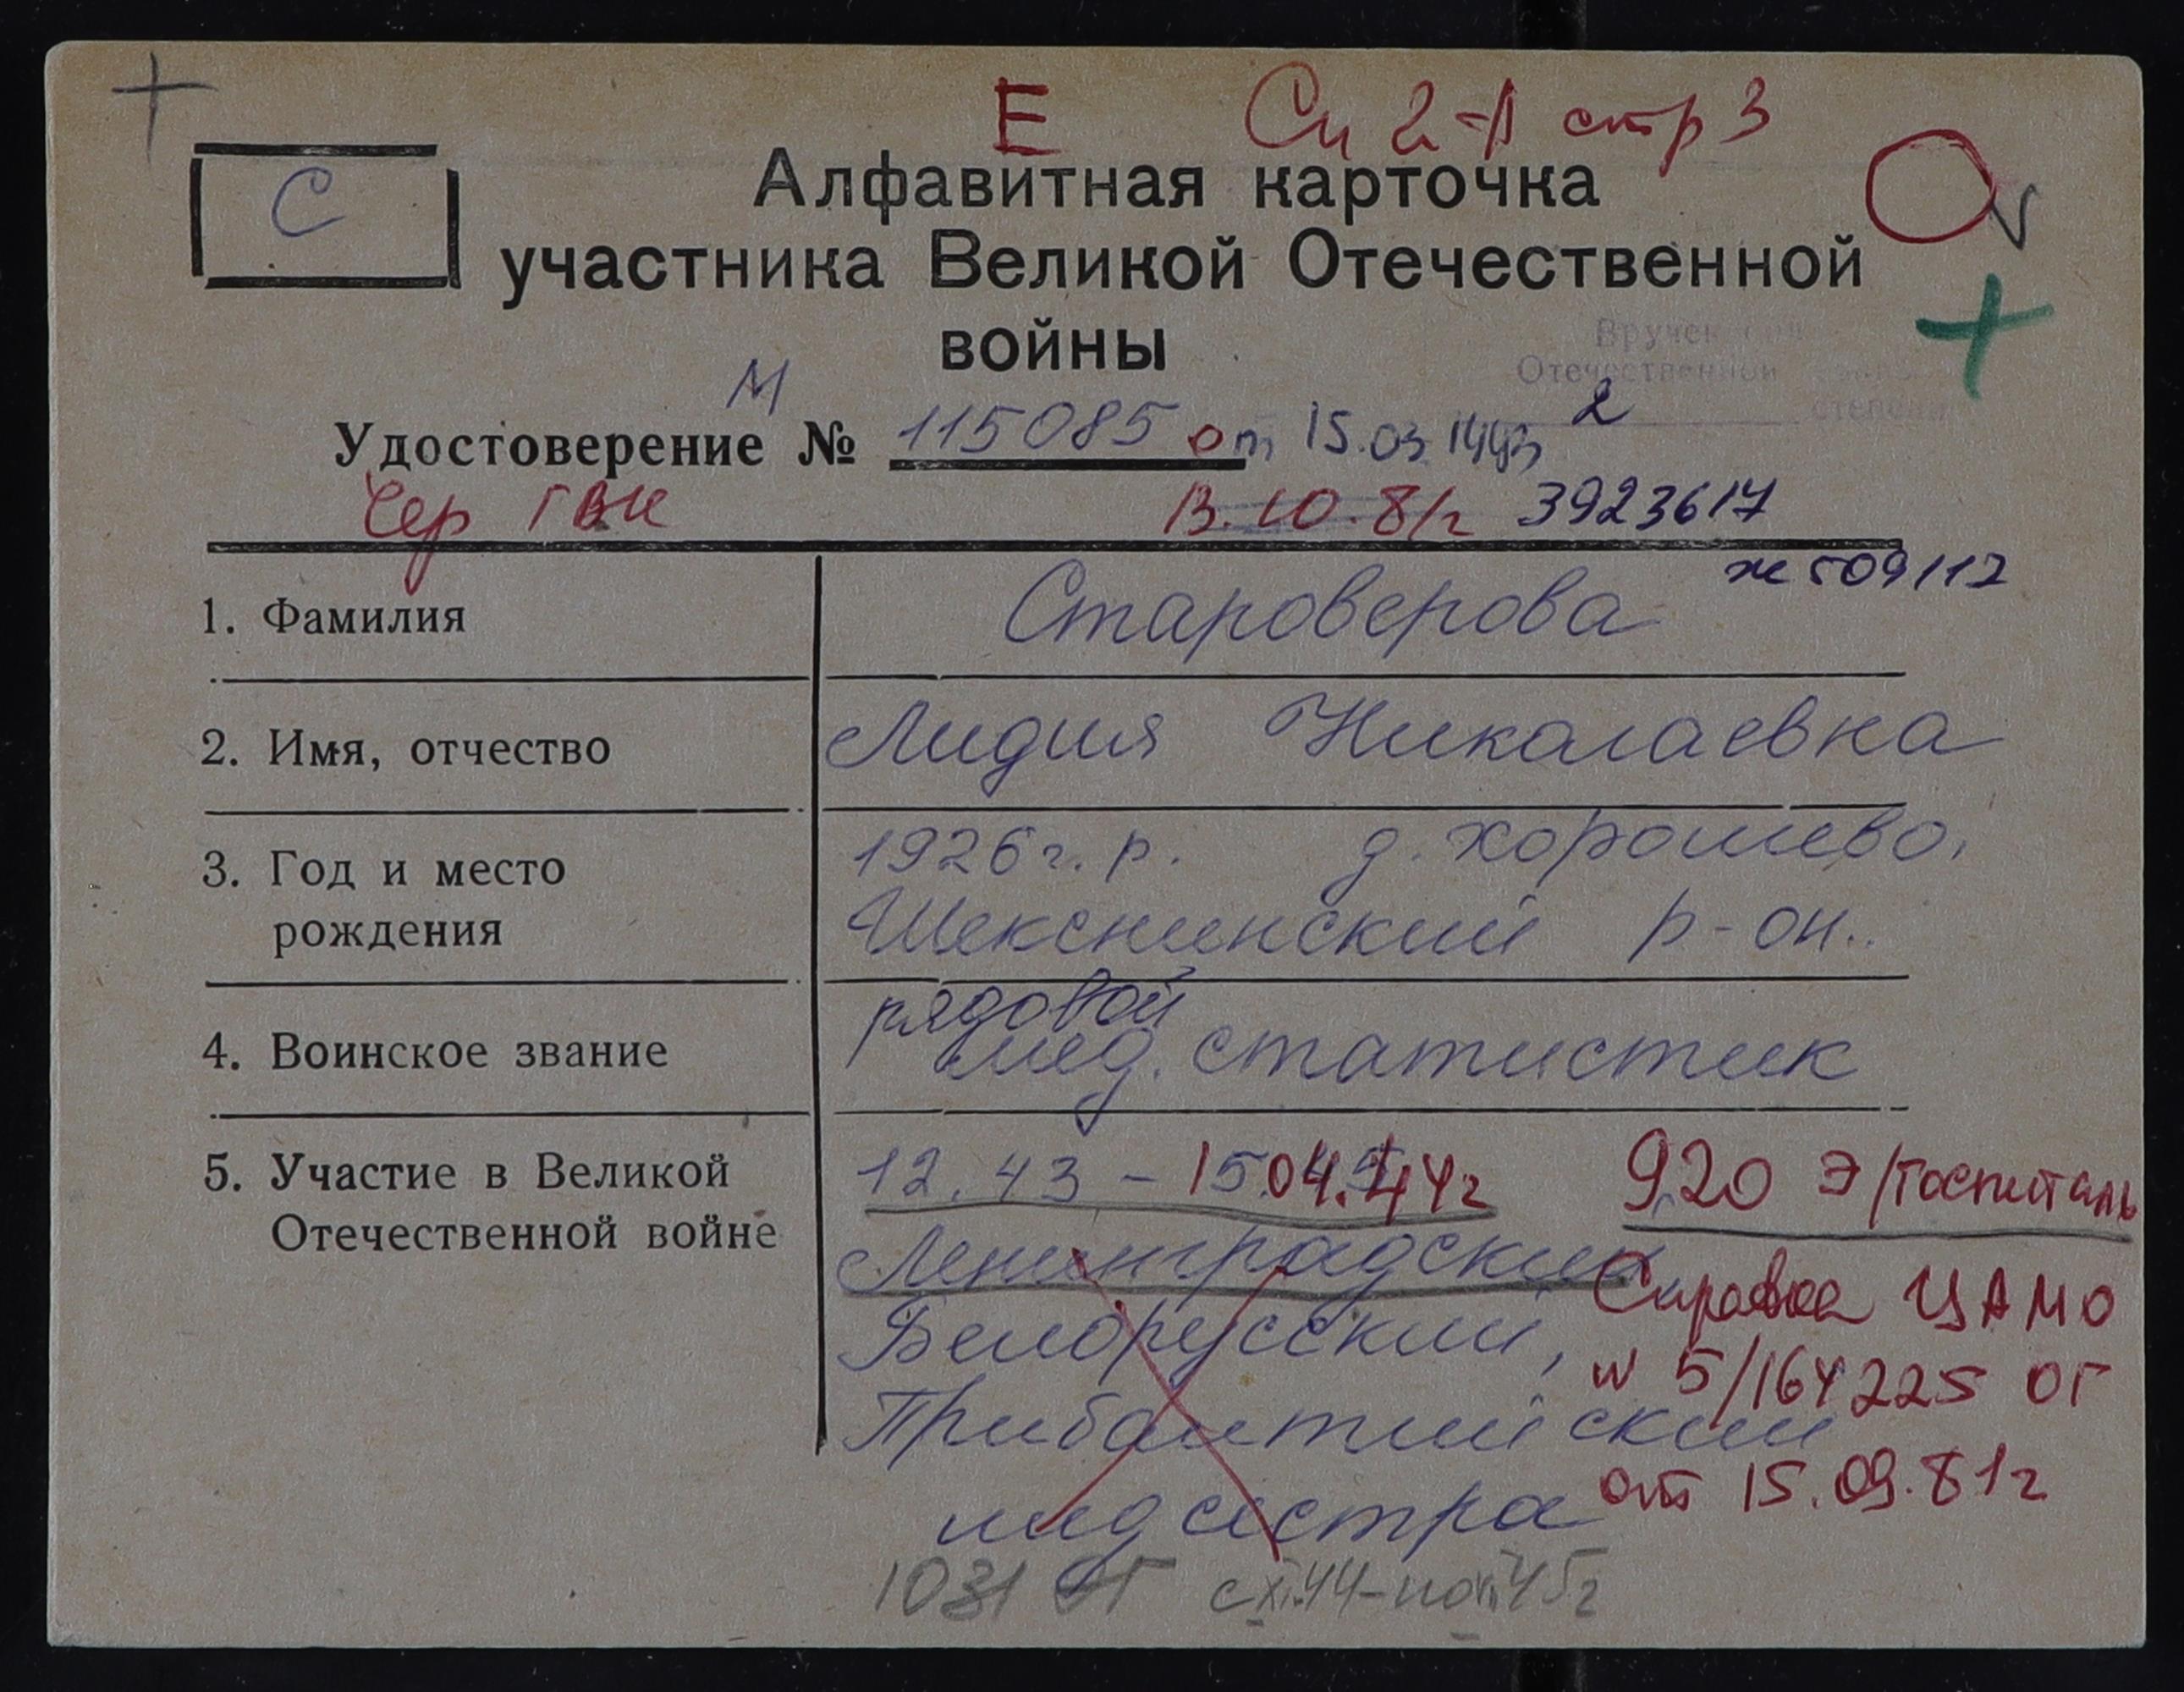 Е Сп 2-А стр 3
С
Алфавитная карточка
участника Великой Отечественной
войны
Отечественной
степени
2
М
Удостоверение № 115085 от 15.03
Чер ГВК
13.10.81г 3923617
ж 509112
1. Фамилия Староверова
2. Имя, отчество Лидия Николаевна
3. Год и место рождения 1926 г. р. д. Хорошево,
Шекснинский р-он.
4. Воинское звание рядовой
мед. статистик
5. Участие в Великой Отечественной войне 12.43 – 15.04.44г 920 Э/Госпиталь
Ленинградский
Белорусский,
Прибалтийский
медсестра
Справка ЦАМО
N 5/164225 ОГ
от 15.09.81г
1031 ЭГ с XI.44 – по 45г